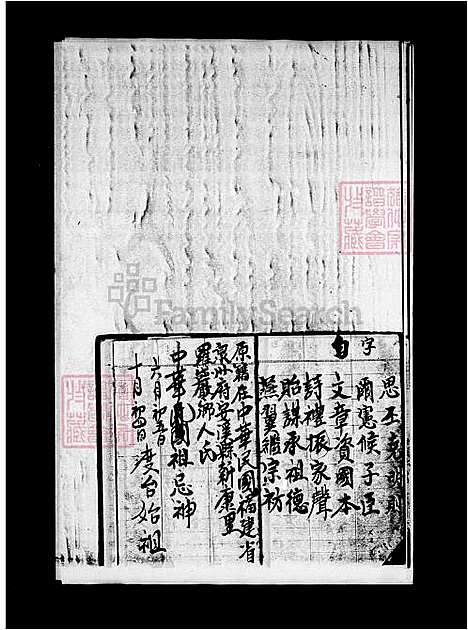 字
思丕克
爾憲候子臣
文章資國本
詩禮振家聲
貽謀承祖德
燕翼繼宗祊
原籍在中華民國福建省
泉州府安溪縣新康里
羅巖鄉人氏
中華民國祖忌神
六月初五日
十月初四日 渡台始祖
FamilySearch